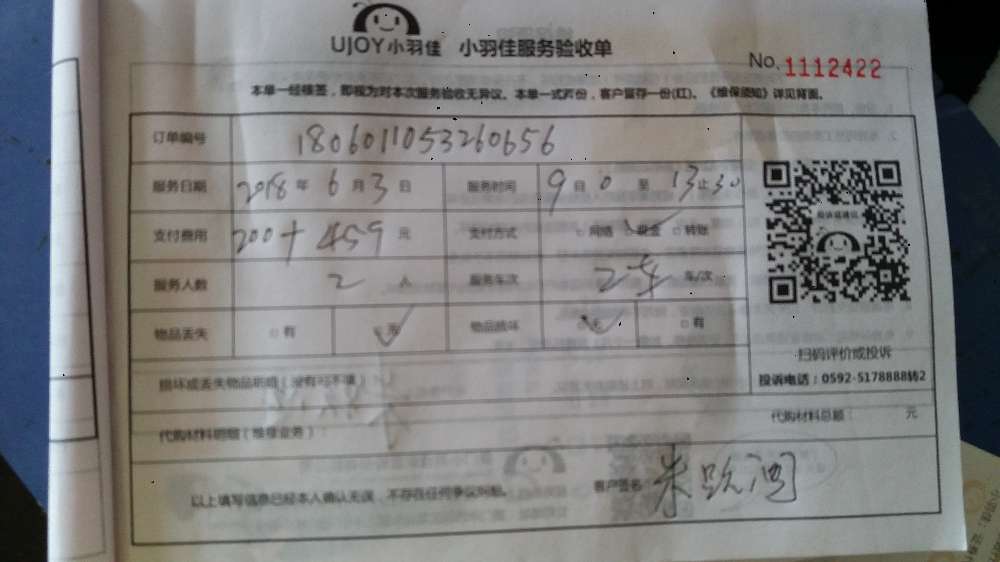 UJOY小羽佳 小羽佳服务验收单
No. 1112422
本单一经核签，即视为对本次服务验收无异议。本单一式两份，客户留存一份(红)。《维保须知》详见背面。
订单编号 1806011053260656
服务日期 2018 年 6 月 3 日 服务时间 9 0 至 13 止 30
支付费用 200+459 元 支付方式 □网络 现金 □转账
服务人数 2 人 服务车次 2车 车/次
物品丢失 □有 无 物品损坏 无 □有
投词或建议
扫码评价或投诉
投诉电话：0592-5178888转2
损坏或丢失物品明细（没有可不填）
代购材料总额： 元
代购材料明细（维修业务）：
以上填写信息已经本人确认无误，不存在任何争议问题。 客户签名：朱跃